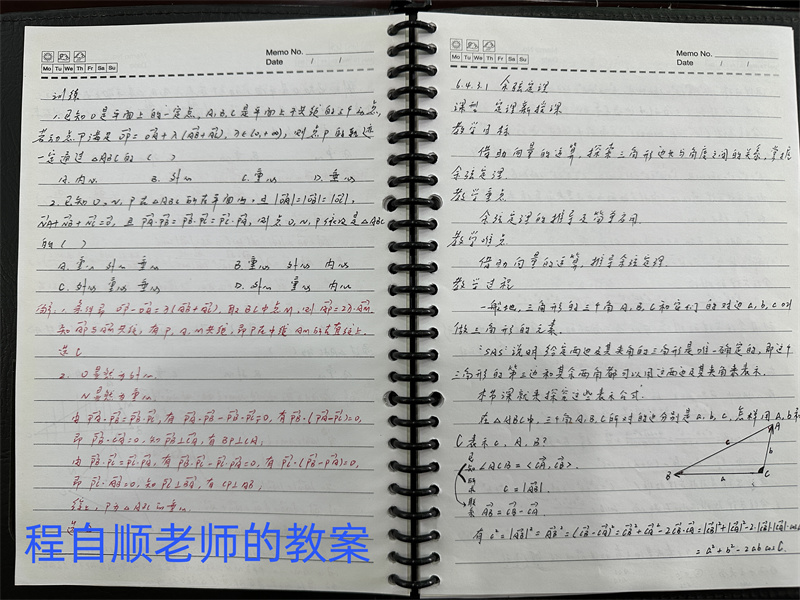 Memo No.
Mo Tu We Th Fr Sa Su
Date / /
训练
1. 已知O是平面上的一定点, A,B,C是平面上不共线的三个动点,
若动点P满足 OP = OA + λ(AB+AC), λ∈(0,+∞), 则点P的轨迹
一定通过△ABC的 ( )
A. 内心 B. 外心 C. 重心 D. 垂心
2. 已知O, N, P在△ABC所在平面内, 且|OA|=|OB|=|OC|,
NA+NB+NC=0, 且 PA·PB=PB·PC=PC·PA, 则点O, N, P依次是△ABC
的 ( )
A. 重心 外心 垂心 B. 重心 外心 内心
C. 外心 重心 垂心 D. 外心 重心 内心
解: 1. 条件即 OP-OA=λ(AB+AC), 取BC中点M, 则 AP=2λAM,
知AP与AM共线, 有P, A, M共线, 即P在中线AM所在直线上.
选C
2. O显然为外心.
N显然为重心.
由 PA·PB=PB·PC, 有 PA·PB-PB·PC=0, 有 PB·(PA-PC)=0,
即 PB·CA=0, 知 PB⊥CA, 有BP⊥CA;
由 PB·PC=PC·PA, 有 PB·PC-PC·PA=0, 有 PC·(PB-PA)=0,
即 PC·AB=0, 知 PC⊥AB, 有CP⊥AB;
综上, P为△ABC的垂心.
选
程自顺老师的教案
Memo No.
Mo Tu We Th Fr Sa Su
Date / /
6.4.3.1 余弦定理
课型 定理新授课
教学目标
借助向量的运算, 探索三角形边长与角度之间的关系, 掌握
余弦定理.
教学重点
余弦定理的推导及简单应用.
教学难点
借助向量的运算, 推导余弦定理.
教学过程
一般地, 三角形的三个角A, B, C和它们的对边a, b, c叫
做三角形的元素.
"SAS"说明给定两边及其夹角的三角形是唯一确定的, 即这个
三角形的第三边和其余两角都可以用这两边及其夹角来表示.
本节课就来探究这些表示公式.
在△ABC中, 三个角A, B, C所对的边分别是a, b, c, 怎样用a, b和
C表示c, A, B?
已知 ∠ACB=<CA,CB>.
所求 c=|AB|.
联系 AB=CB-CA
A
B
C
c
b
a
有 c²=|AB|²=AB²=(CB-CA)²=CB²+CA²-2CB·CA=|CB|²+|CA|²-2·|CB|·|CA|·cos
=a²+b²-2ab cos C.